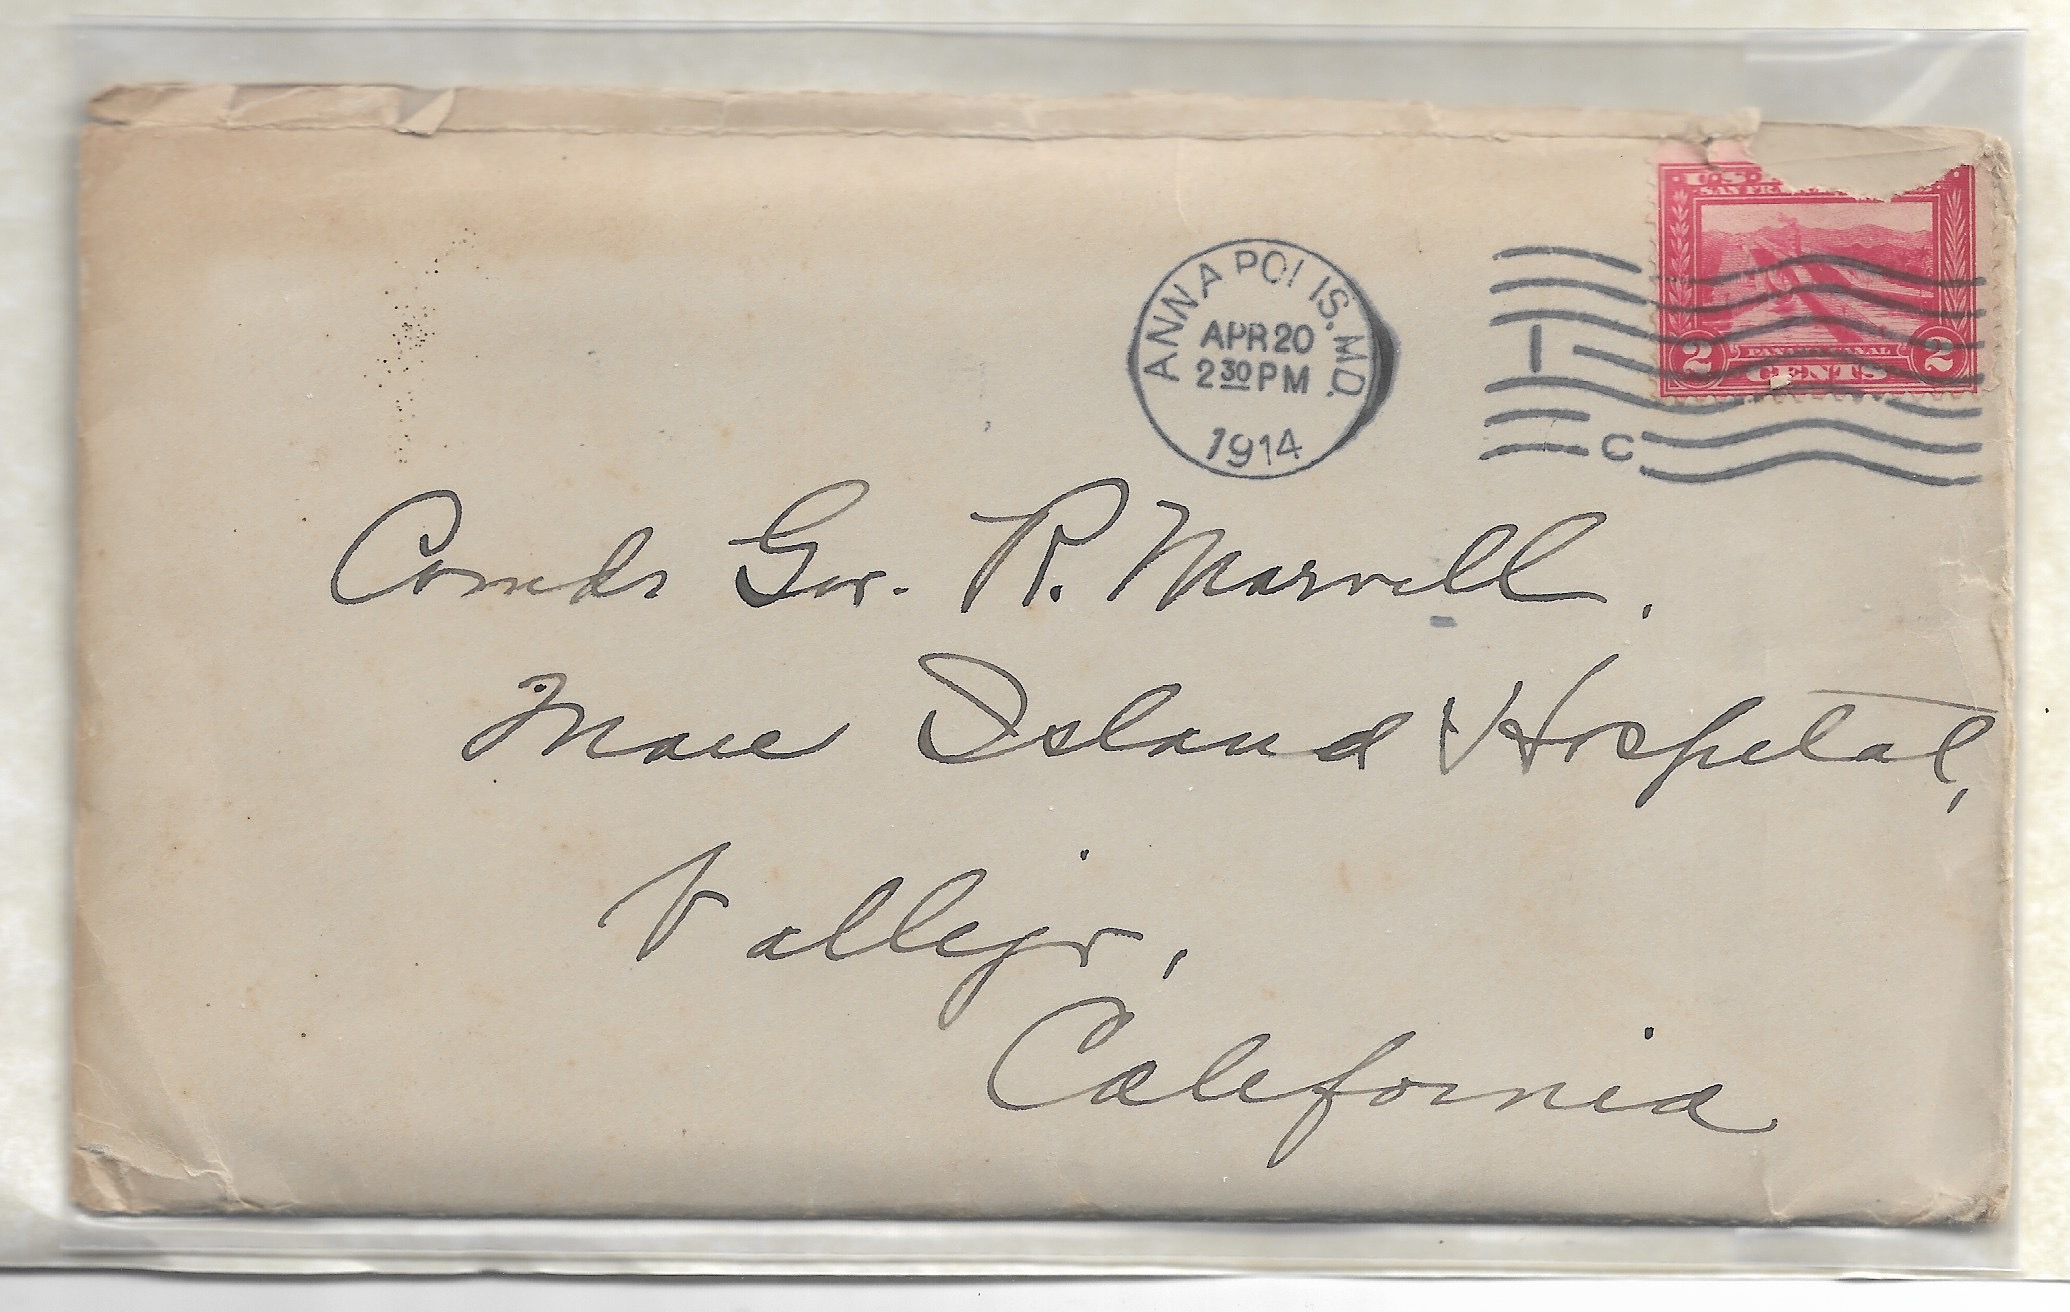 ANNAPOLIS, MD.
APR 20
2 30 PM
1914
1
C
U.S. P
SAN FRA
2 PANAMA CANAL 2
CENTS
Comdr Geo. R. Marvell.
Mare Island Hospital,
Vallejo,
California